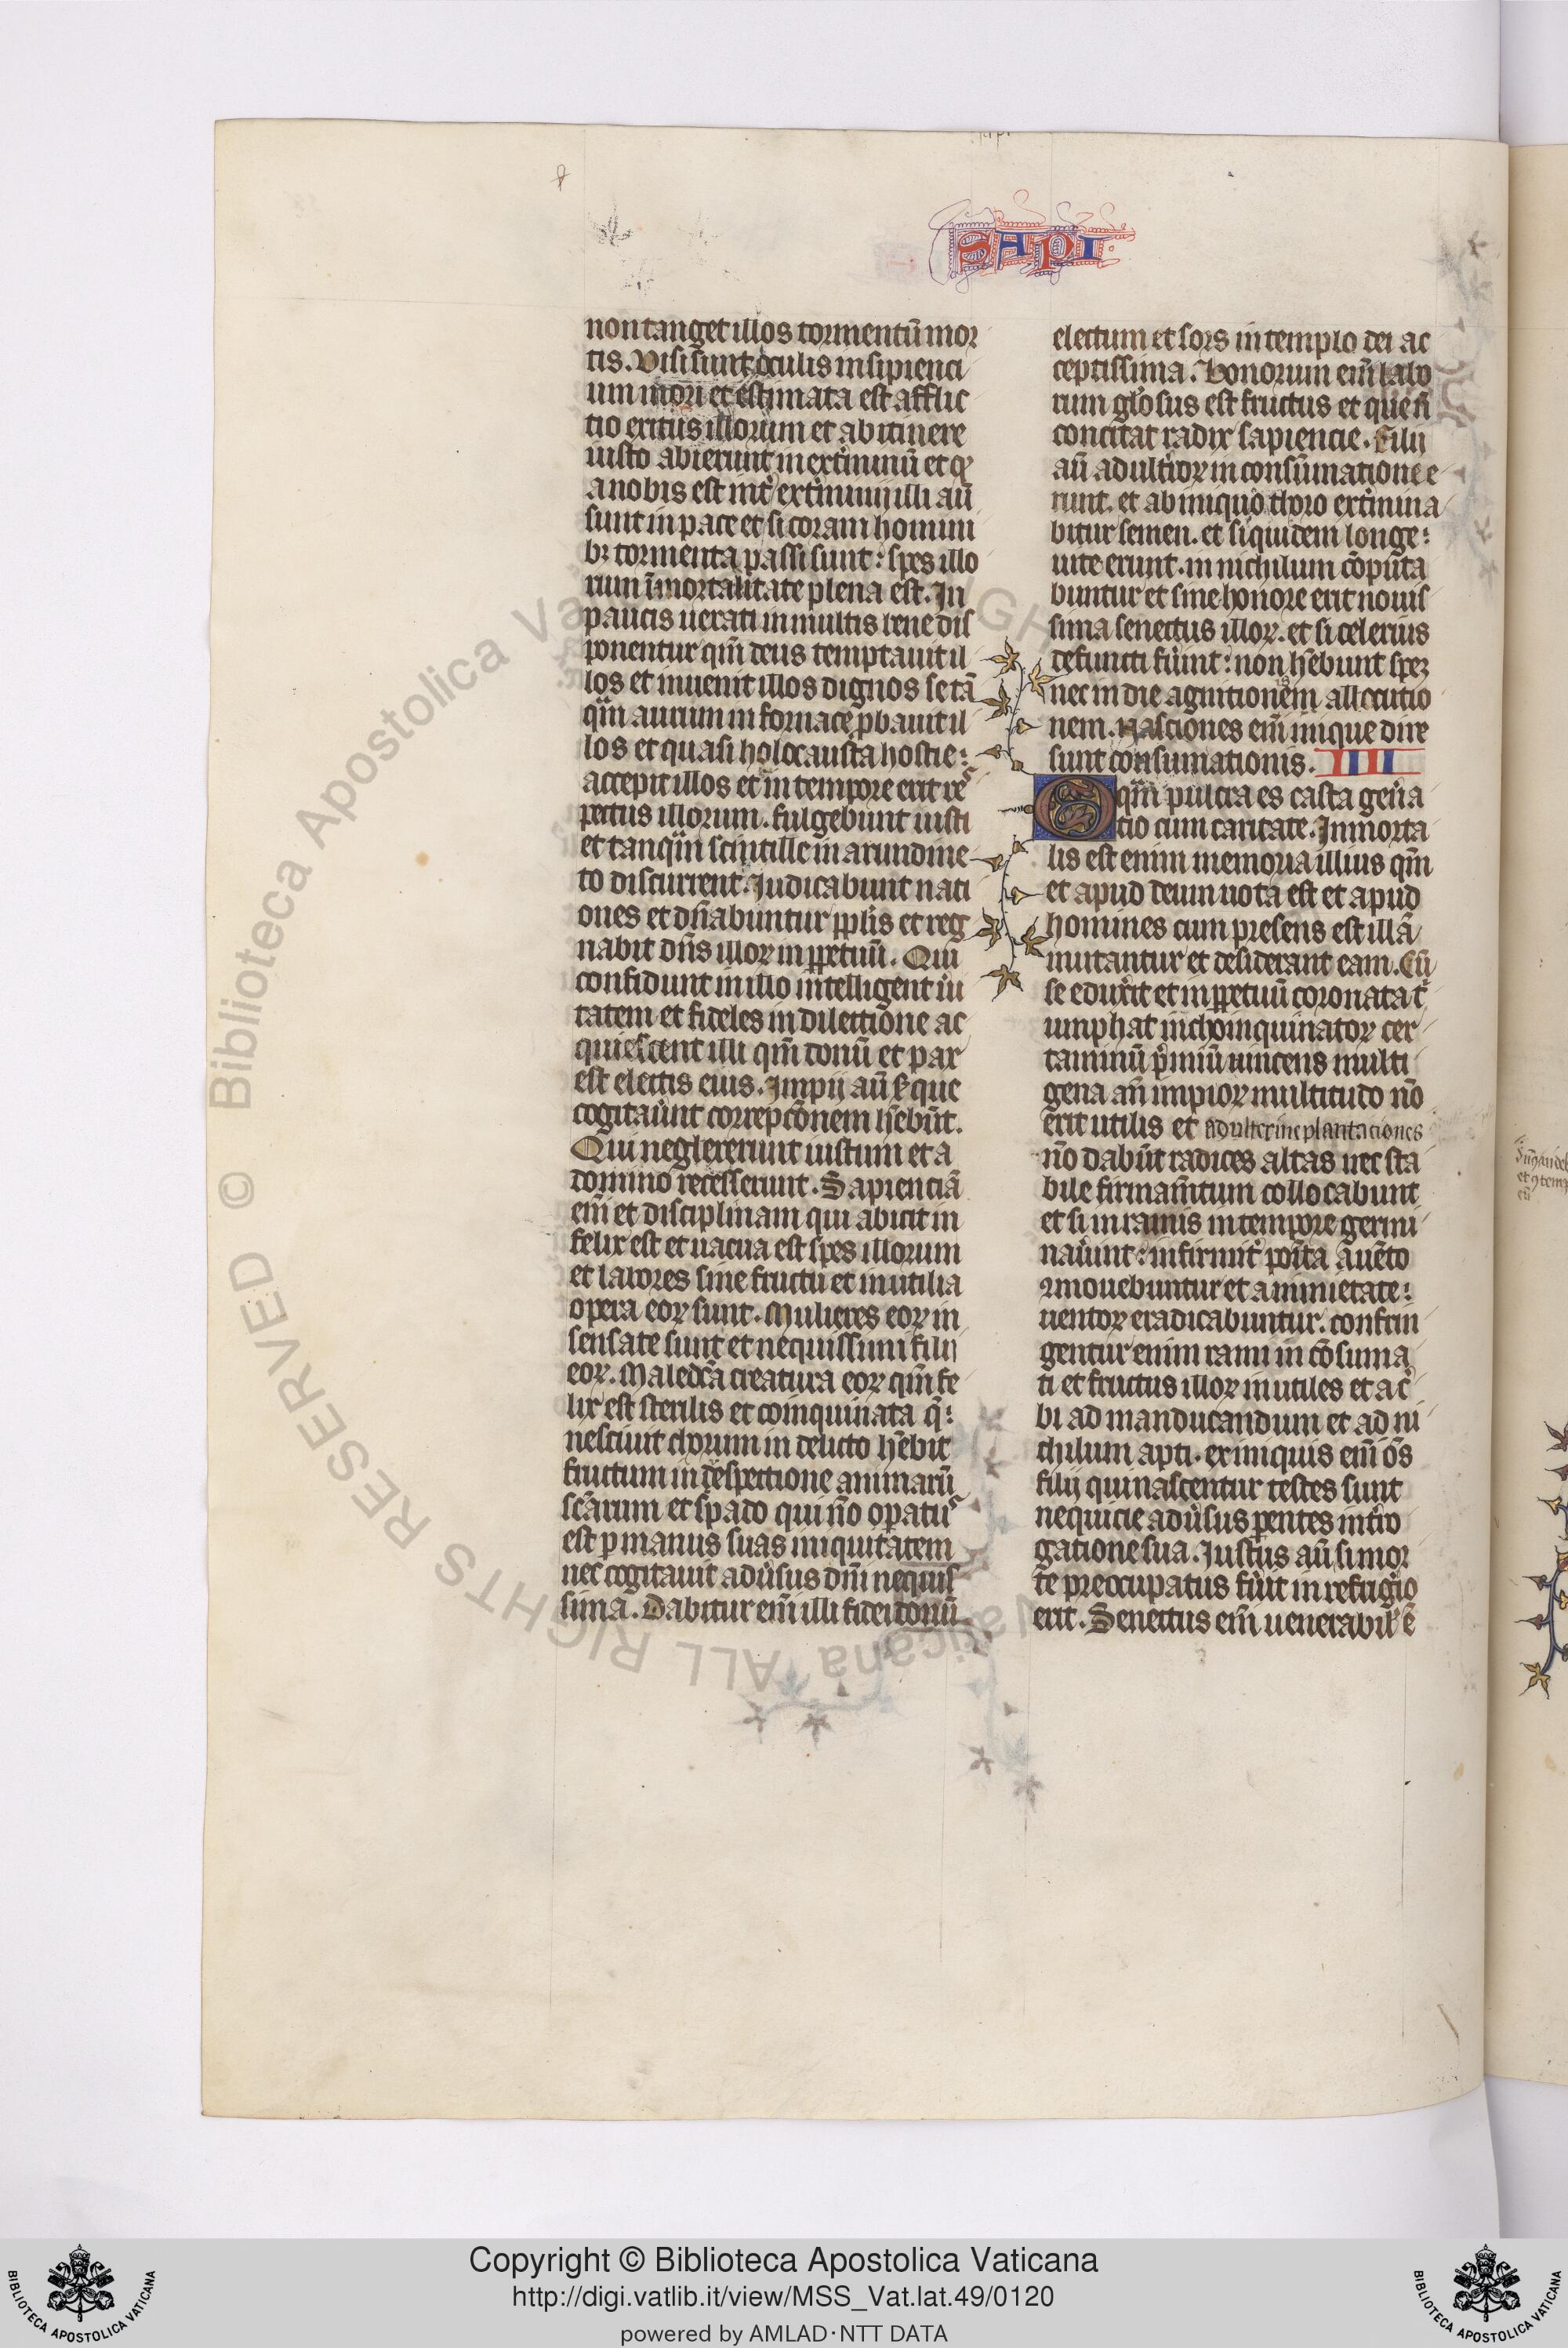 SAPI
non tanget illos tormentū mor
tis. Visi sunt oculis insipienci
um mori et estimata est afflic
tio exitus illorum et ab itinere
iusto abierunt in extͥminiū et qͦꝫ
a nobis est intͥ extͥminij illi aū
sunt in pace et si coram homini
bꝫ tormenta passi sunt: spes illo
rum ī̄mortalitate plena est. In
paucis uexati in multis bene dis
ponentur qm̄ deus temptauit il
los et inuenit illos dignos se tā
qͣm aurum in fornace ꝓbauit il
los et quasi holocausta hostie:
accepit illos et in tempore erit reˢ
pectus illorum. fulgebunt iusti
et tanqͣm scintille in arundine
to discurrent. Iudicabunt nati
ones et dn̄abuntur ppl̄is et reg
nabit dn̄s illoꝝ in ꝑpetuū. Qui
confidunt in illo intelligent uͥi
tatem et fideles in dilectione ac
quiescent illi qm̄ donū et pax
est electis eius. Impij aū ẜ que
cogitaûnt correpcōnem hēbūt.
Qui neglexerunt iustum et a
domino recesserunt. Sapienciā
em̄ et disciplinam qui abicit in
felix est et uacua est spes illorum
et labores sine fructu et inutilia
opera eoꝝ sunt. Mulieres eoꝝ in
sensate sunt et nequissimi filij
eoꝝ. Maledc̄a creatura eoꝝ qm̄ fe
lix est sterilis et coinquinata q̄:
nesciuit thorum in delicto hēbit
fructum in despectione animarū
sc̄arum et spado qui nō opatuˢ
est ꝑ manus suas iniquitatem
nec cogitauit adûsus dn̄i nequis
sima. Dabitur em̄ illi fidei donū
electum et sors in templo dei ac
ceptissima. Bonorum em̄ labo
rum glōsus est fructus et que n̄
concitat radix sapiencie. Filij
aū adultͥioꝝ in consūmatione e
runt. et ab iniquo thoro extͥmina
bitur semen. et siquidem longe:
uite erunt. in nichilum cōputa
buntur et sine honore erit nouis
sima senectus illoꝝ. et si celerius
defuncti fûint: non hēbunt speꝫ
nec in die agnitionem allocutio
nem. Nasciones em̄ inique dire
sunt consumationis. IIII
O qͣm pulcra es casta genͥa
tio cum caritate. Inmorta
lis est enim memoria illius qm̄
et apud deum nota est et apud
homines cum presens est illā
imitantur et desiderant eam. Cū
se eduxͥit et in ꝑpetuū coronata tͥ
umphat inchoinquinatoꝝ cer
taminū p̄miū uincens multi
gena aū impioꝝ multitudo nō
erit utilis et adulterine plantaciones
nō dabūt radices altas nec sta
bile firmam̄tum collocabunt
et si in ramis in tempore germi
naûint: infirmitͥ poīta a uēto
ꝯmouebuntur et a nimietate:
uentoꝝ eradicabuntur. confrin
gentur enim rami in cōsuma
ti et fructus illoꝝ inutiles et acͥ
bi ad manducandum et ad ni
chilum apti. ex iniquis em̄ oēs
filij qui nascentur testes sunt
nequicie adûsus ꝑentes intͥro
gatione sua. Iustus aū si mor
te preoccupatus fûit in refrigͥio
erit. Senectus em̄ uenerabil' ē
Copyright © Biblioteca Apostolica Vaticana
http://digi.vatlib.it/view/MSS_Vat.lat.49/0120
powered by AMLAD·NTT DATA
BIBLIOTECA APOSTOLICA VATICANA
BIBLIOTECA APOSTOLICA VATICANA
© Biblioteca Apostolica Vaticana ALL RIGHTS RESERVED